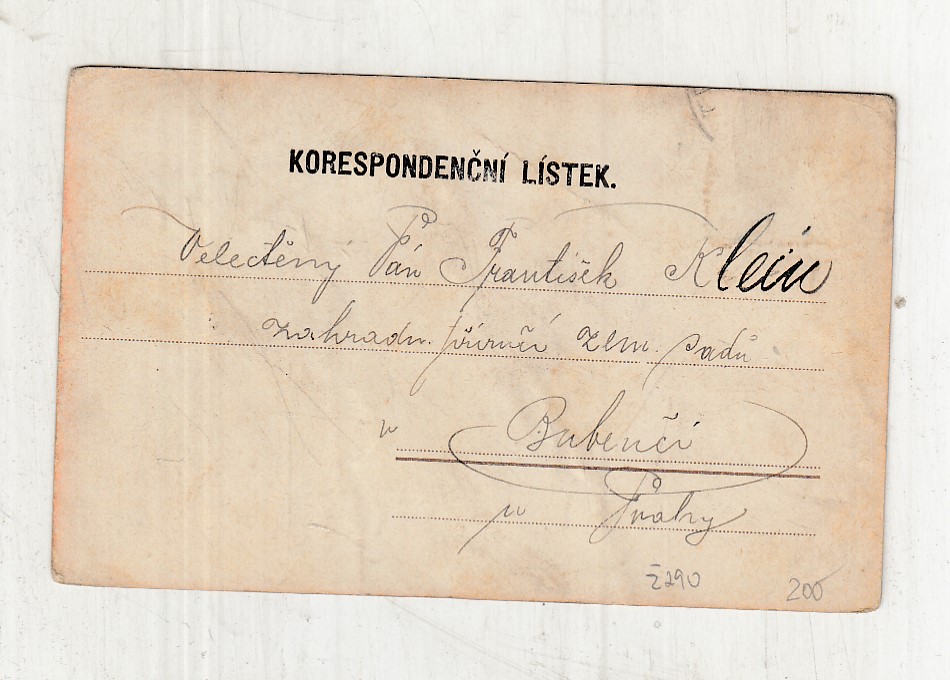 KORESPONDENČNÍ LÍSTEK.
Velectěný Pán František Klein
zahradn. příručí zem. sadů
v Bubenči
u Prahy
Ž290 200